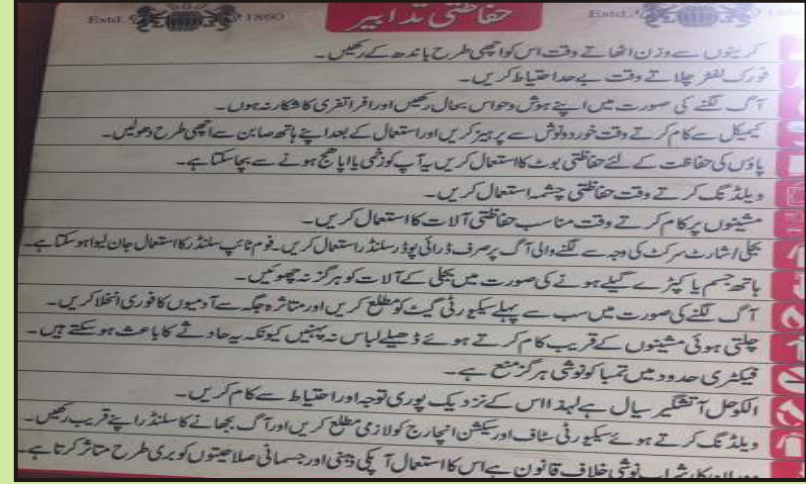 Estd. 1860
حفاظتی تدابیر
Estd.
کرینوں سے وزن اٹھاتے وقت اس کو اچھی طرح باندھ کے رکھیں ۔
فورک لفٹر چلاتے وقت بے حد احتیاط کریں ۔
آگ لگنے کی صورت میں اپنے ہوش وحواس بحال رکھیں اور افراتفری کا شکار نہ ہوں ۔
کیمیکل سے کام کرتے وقت خوردونوش سے پرہیز کریں اور استعمال کے بعد اپنے ہاتھ صابن سے اچھی طرح دھولیں ۔
پاؤں کی حفاظت کے لئے حفاظتی بوٹ کا استعمال کریں یہ آپ کو زخمی یا اپاہج ہونے سے بچا سکتا ہے ۔
ویلڈنگ کرتے وقت حفاظتی چشمہ استعمال کریں ۔
مشینوں پر کام کرتے وقت مناسب حفاظتی آلات کا استعمال کریں ۔
بجلی / شارٹ سرکٹ کی وجہ سے لگنے والی آگ پر صرف ڈرائی پوڈر سلنڈر استعمال کریں ۔ فوم ٹائپ سلنڈر کا استعمال جان لیوا ہو سکتا ہے ۔
ہاتھ جسم یا کپڑے گیلے ہونے کی صورت میں بجلی کے آلات کو ہرگز نہ چھوئیں ۔
آگ لگنے کی صورت میں سب سے پہلے سیکیورٹی گیٹ کو مطلع کریں اور متاثرہ جگہ سے آدمیوں کا فوری انخلا کریں ۔
چلتی ہوئی مشینوں کے قریب کام کرتے ہوئے ڈھیلے لباس نہ پہنیں کیونکہ یہ حادثے کا باعث ہو سکتے ہیں ۔
فیکٹری حدود میں تمباکو نوشی ہرگز منع ہے ۔
الکوحل آتشگیر سیال ہے لہذا اس کے نزدیک پوری توجہ اور احتیاط سے کام کریں ۔
ویلڈنگ کرتے ہوئے سیکیورٹی سٹاف اور سیکشن انچارج کو لازمی مطلع کریں اور آگ بجھانے کا سلنڈر اپنے قریب رکھیں ۔
شراب نوشی خلاف قانون ہے اس کا استعمال آپکی ذہنی اور جسمانی صلاحیتوں کو بری طرح متاثر کرتا ہے ۔